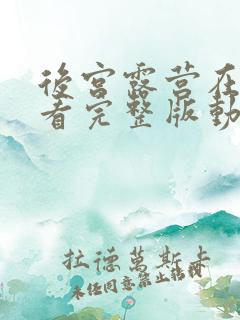 後宮露营在
看完整版動
拉德萬斯卡
未经同意禁止转载